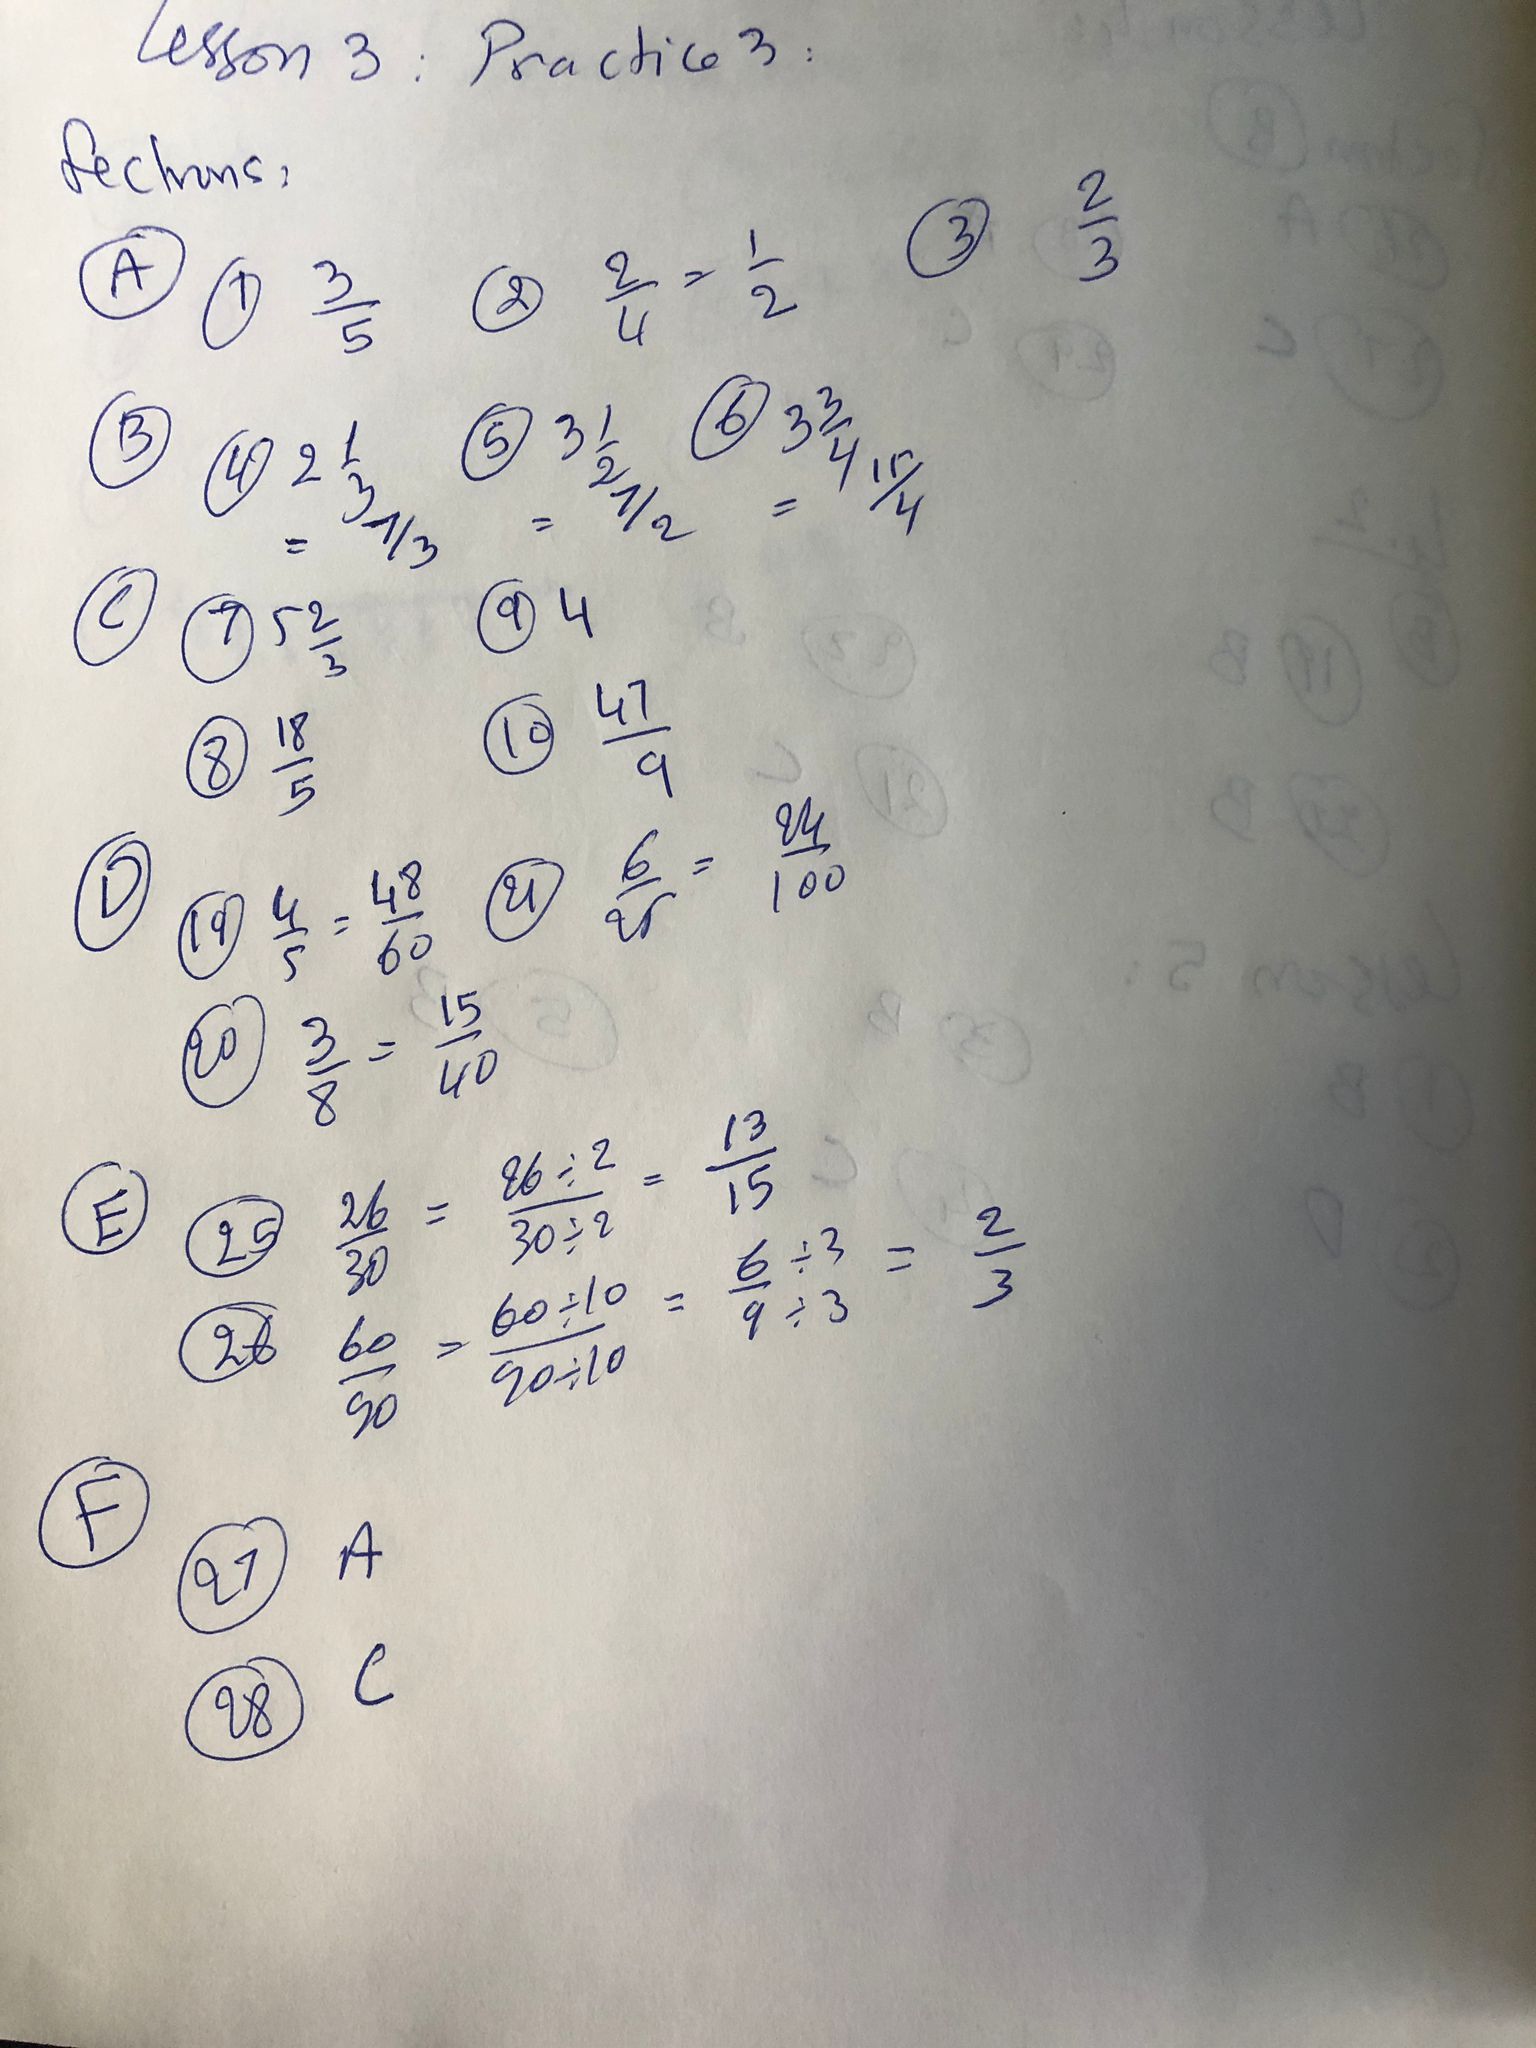 Lesson 3: Practice 3:
Sections:
(A) (1) 3/5 (2) 2/4 = 1/2 (3) 2/3
(B) (4) 2 1/3 = 7/3 (5) 3 1/2 = 7/2 (6) 3 3/4 = 15/4
(C) (7) 5 2/3 (9) 4
(8) 18/5 (10) 47/9
(D) (19) 4/5 = 48/60 (21) 6/25 = 24/100
(20) 3/8 = 15/40
(E) (25) 26/30 = 26÷2/30÷2 = 13/15
(26) 60/90 = 60÷10/90÷10 = 6÷3/9÷3 = 2/3
(F)
(27) A
(28) C